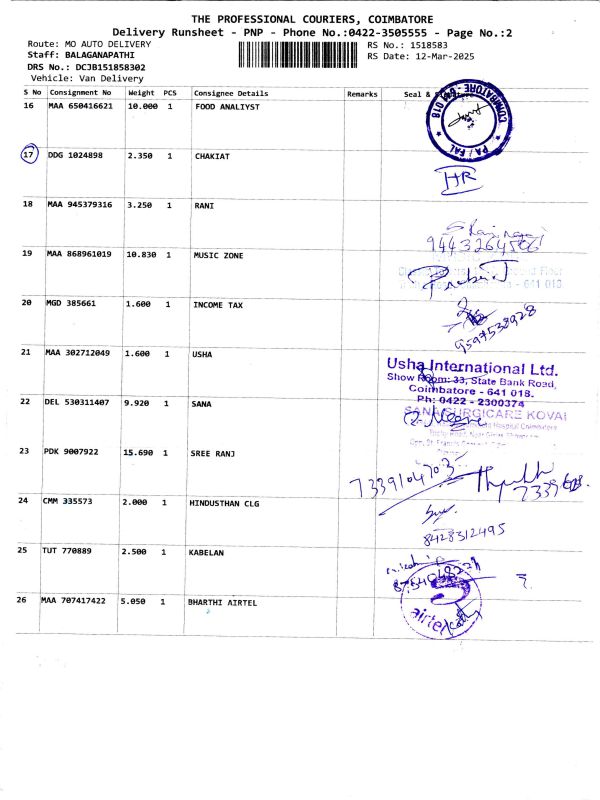 THE PROFESSIONAL COURIERS, COIMBATORE
Delivery Runsheet - PNP - Phone No.:0422-3505555 - Page No.:2
Route: MO AUTO DELIVERY RS No.: 1518583
Staff: BALAGANAPATHI RS Date: 12-Mar-2025
DRS No.: DCJB151858302
Vehicle: Van Delivery
S No Consignment No Weight PCS Consignee Details Remarks Seal &
16 MAA 650416621 10.000 1 FOOD ANALIYST
COIMBATORE 018 PA / FAL
17 DDG 1024898 2.350 1 CHAKIAT
HR
18 MAA 945379316 3.250 1 RANI
19 MAA 868961019 10.830 1 MUSIC ZONE
- 641 018.
20 MGD 385661 1.600 1 INCOME TAX
9597538928
21 MAA 302712049 1.600 1 USHA
Usha International Ltd.
Show Room: 33, State Bank Road,
Coimbatore - 641 018.
Ph: 0422 - 2300374
22 DEL 530311407 9.920 1 SANA
SANA SURGICARE KOVAI
23 PDK 9007922 15.690 1 SREE RANJ
7339104703
24 CMM 335573 2.000 1 HINDUSTHAN CLG
8428312495
25 TUT 770889 2.500 1 KABELAN
26 MAA 707417422 5.050 1 BHARTHI AIRTEL
airtel